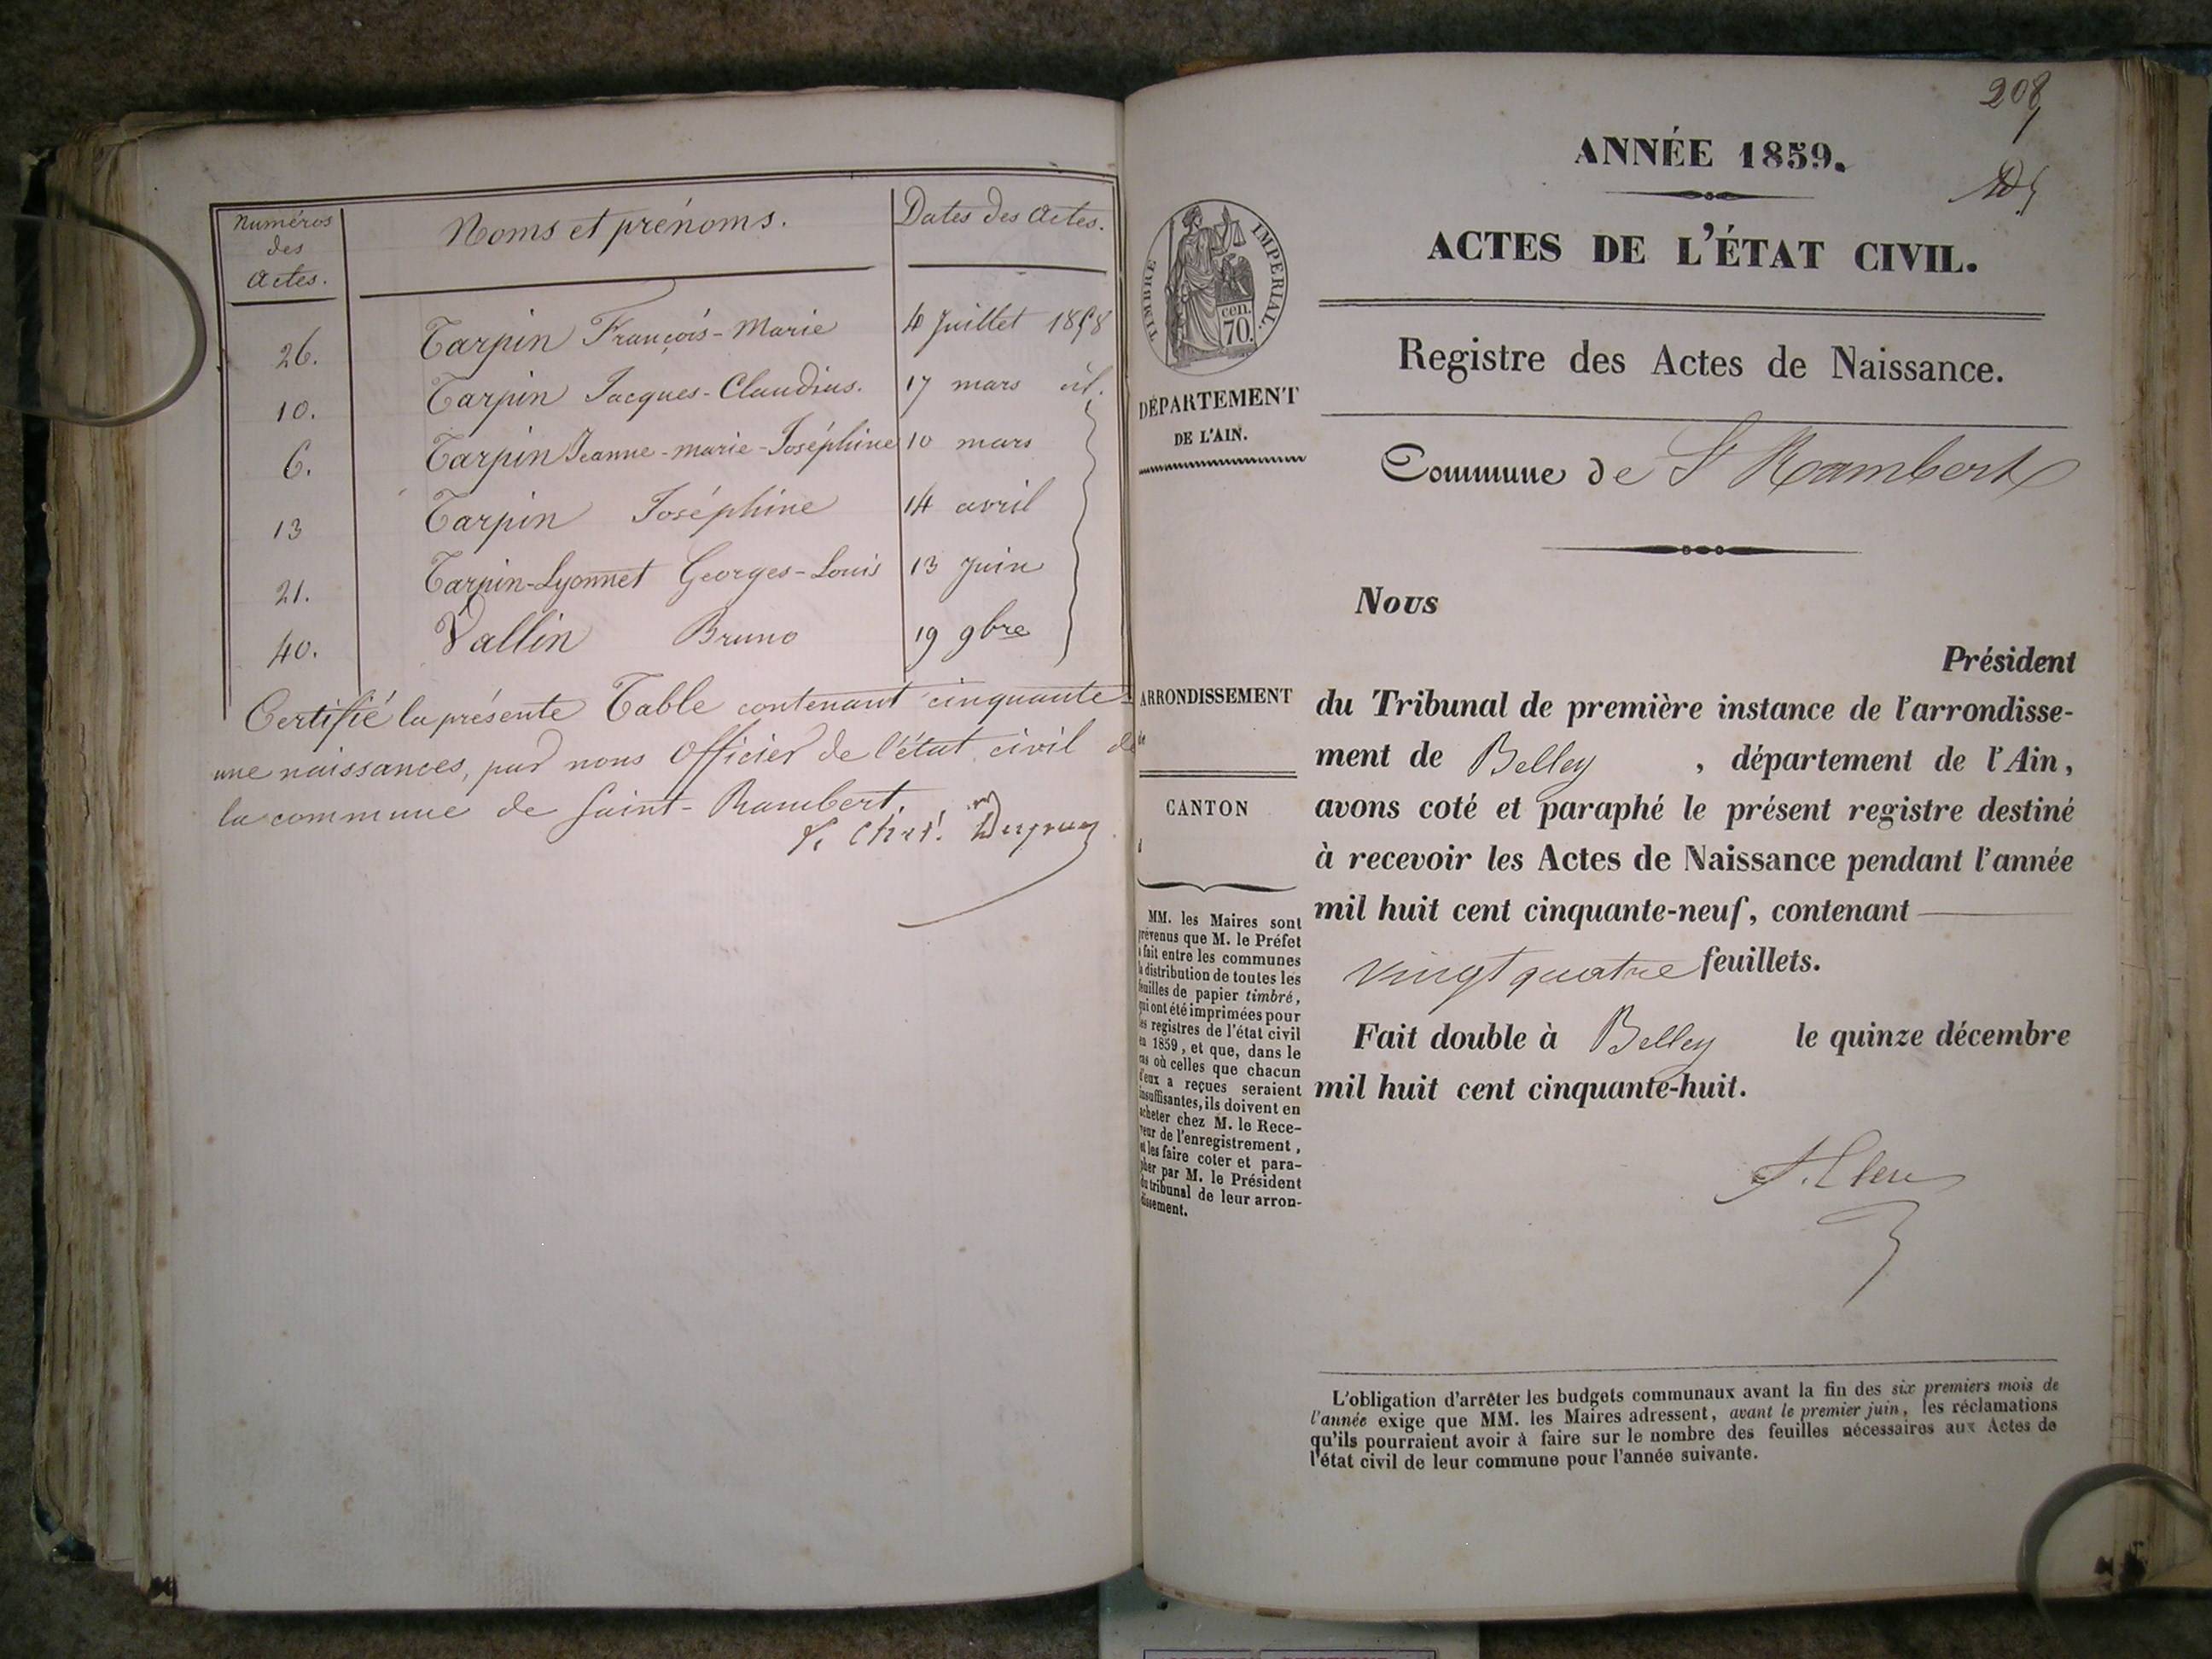 Numéros
des
Actes.
Noms et prénoms.
Dates des Actes.
26. Tarpin François-Marie 4 Juillet 1858
10. Tarpin Jacques-Claudius. 17 mars id.
6. Tarpin Jeanne-marie-Joséphine 10 mars
13 Tarpin Joséphine 14 avril
21. Tarpin-Lyonnet Georges-Louis 13 Juin
40. Vallin Bruno 19 9bre
Certifié la présente Table contenant cinquante
une naissances, par nous Officier de l'état civil de
la commune de Saint-Rambert.
208
ANNÉE 1859.
ACTES DE L'ÉTAT CIVIL.
TIMBRE IMPERIAL.
cen.
70.
Registre des Actes de Naissance.
DÉPARTEMENT
DE L'AIN.
Commune de St Rambert
Nous
Président
ARRONDISSEMENT
de
CANTON
MM. les Maires sont
prévenus que M. le Préfet
a fait entre les communes
la distribution de toutes les
feuilles de papier timbré,
qui ont été imprimées pour
les registres de l'état civil
en 1859, et que, dans le
cas où celles que chacun
d'eux a reçues seraient
insuffisantes, ils doivent en
acheter chez M. le Rece-
veur de l'enregistrement,
et les faire coter et para-
pher par M. le Président
du tribunal de leur arron-
dissement.
du Tribunal de première instance de l'arrondisse-
ment de Belley , département de l'Ain,
avons coté et paraphé le présent registre destiné
à recevoir les Actes de Naissance pendant l'année
mil huit cent cinquante-neuf, contenant
vingt quatre feuillets.
Fait double à Belley le quinze décembre
mil huit cent cinquante-huit.
L'obligation d'arrêter les budgets communaux avant la fin des six premiers mois de
l'année exige que MM. les Maires adressent, avant le premier juin, les réclamations
qu'ils pourraient avoir à faire sur le nombre des feuilles nécessaires aux Actes de
l'état civil de leur commune pour l'année suivante.